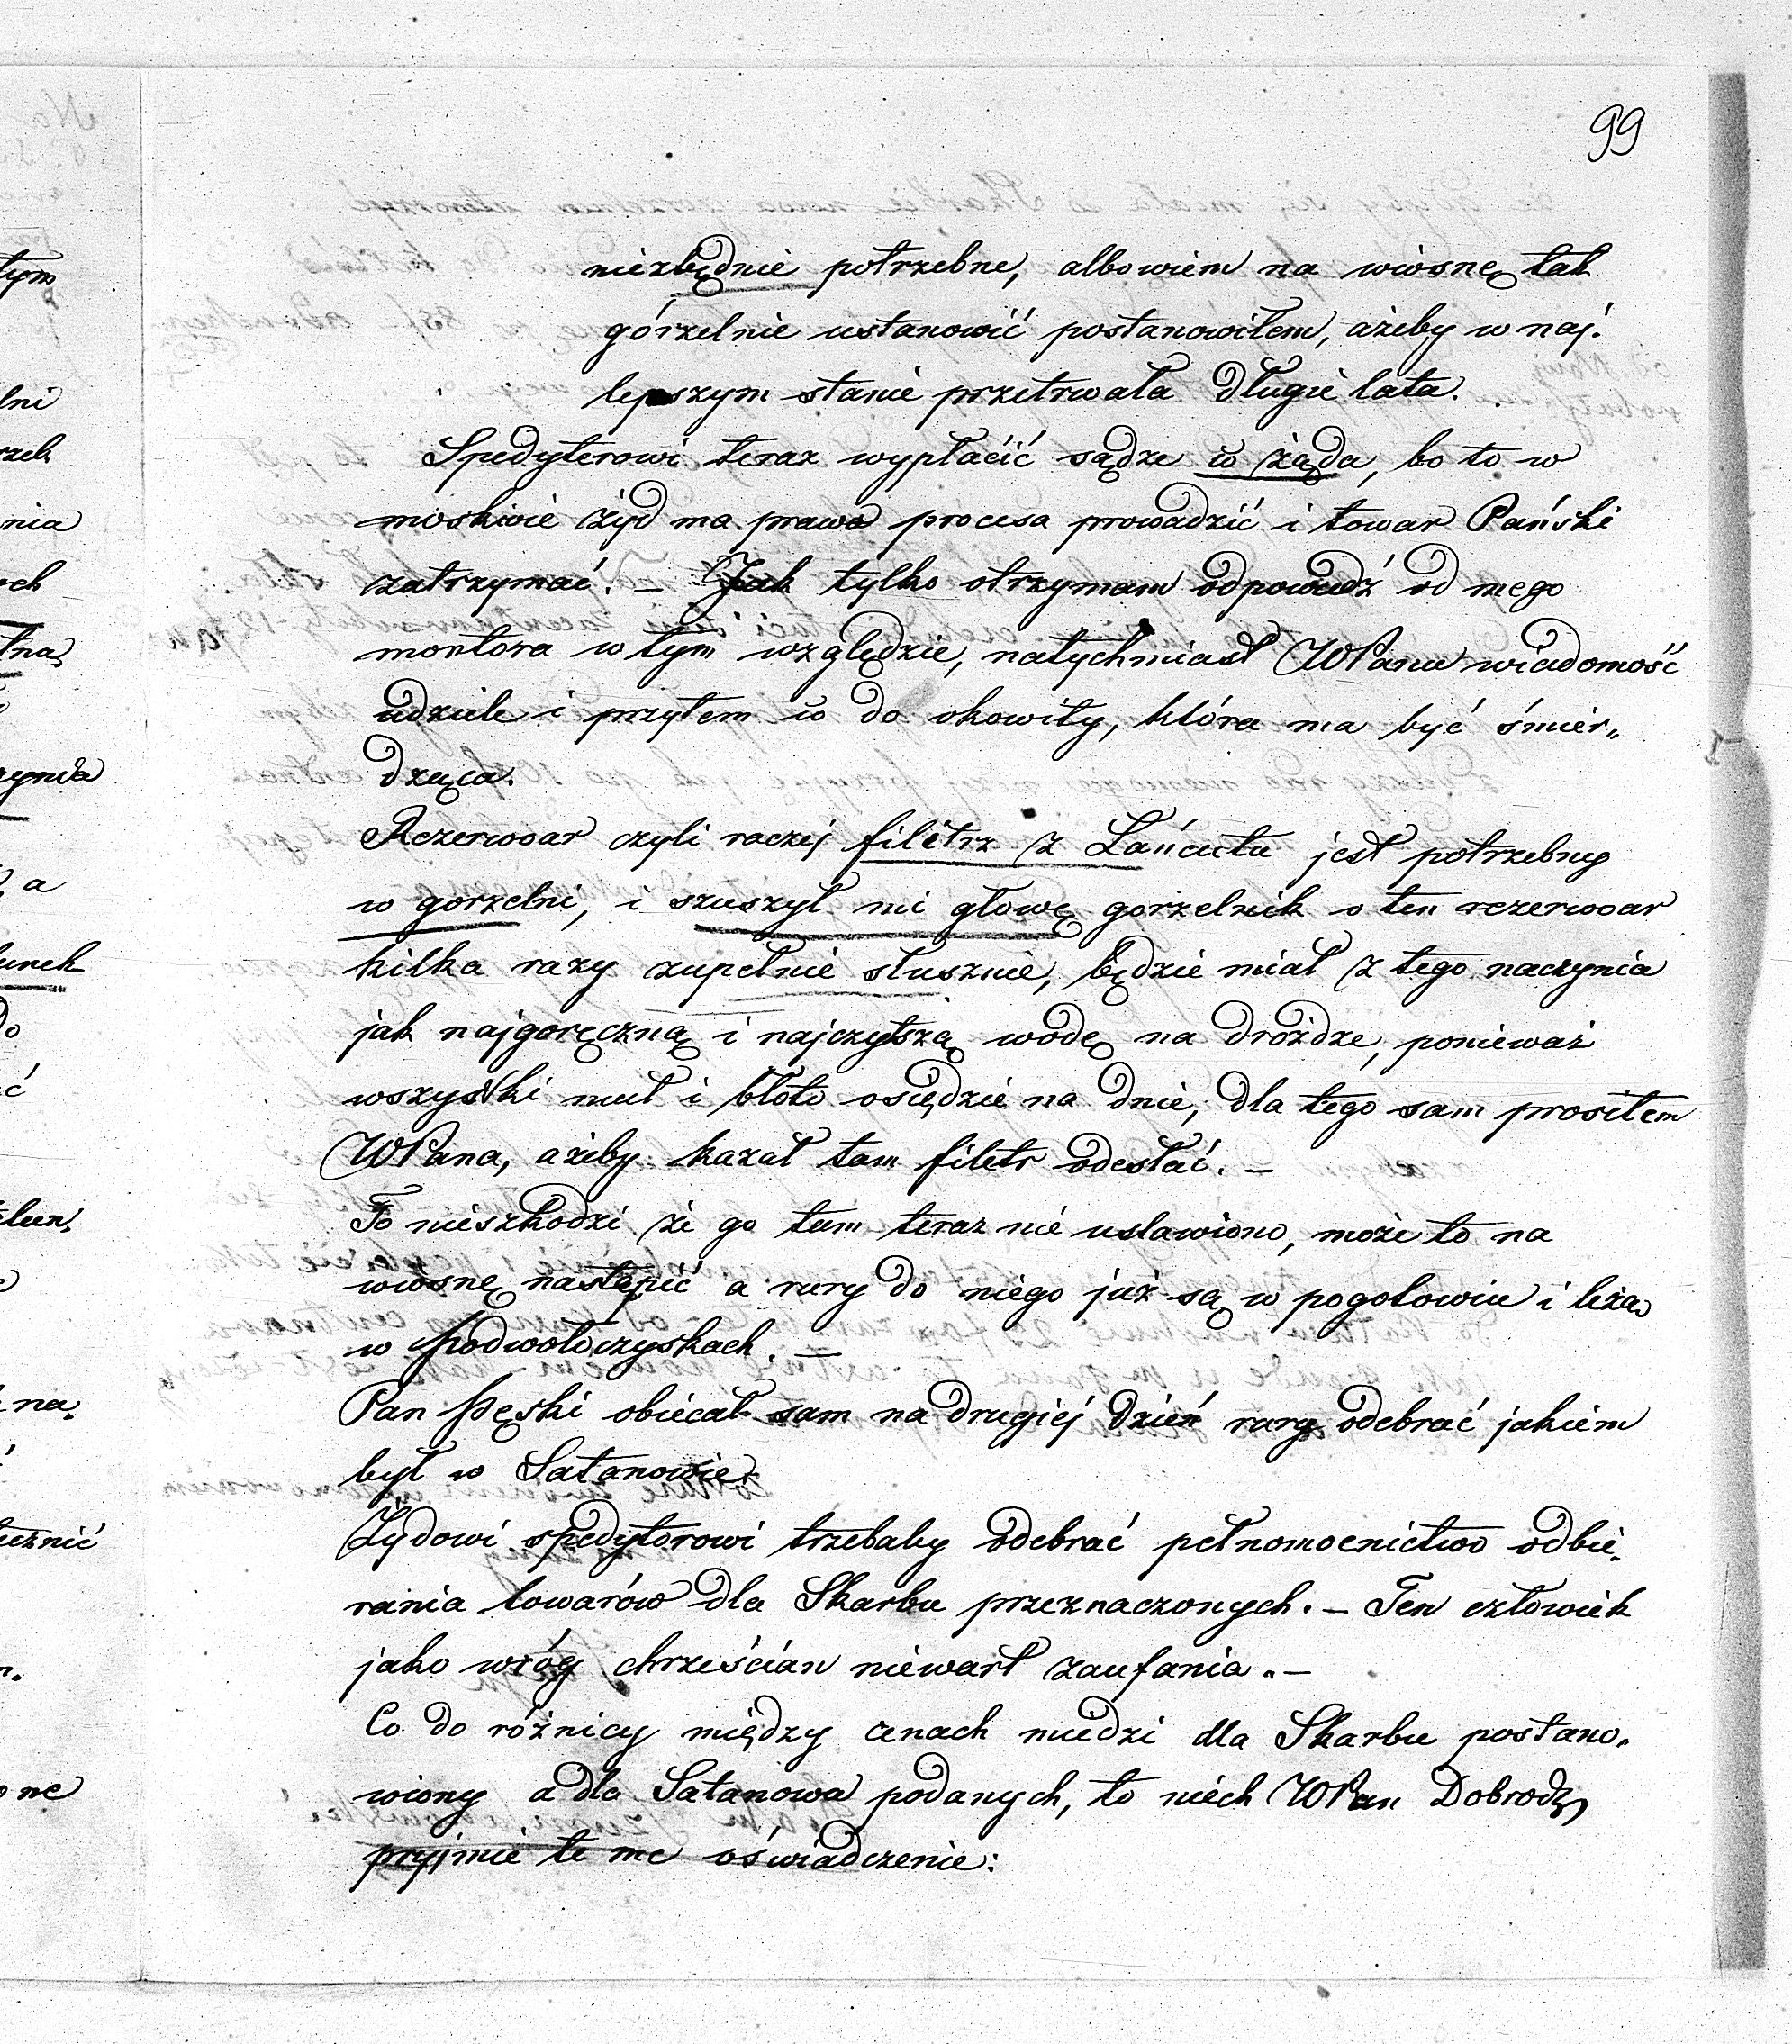 99
niezbędnie potrzebne, albowiem na wiosnę tak
górzelnie ustanowić postanowiłem, ażeby w naj.
lepszym stanie przetrwała długie lata.
Spedyterowi teraz wypłacić sądze co żąda, bo to w
moskwie żyd ma prawo procesa prowadzić i towar Pański
zatrzymać. – Jak tylko otrzymam odpowiedź od mego
montora w tym względzie, natychmiast WPanu wiadomość
udziele i przytem co do okowity, która ma być śmier„
dzęca.
Rezerwoar czyli raczej filetrz z Łańcuta jest potrzebny
w gorzelni, i szuszył mi głowę gorzelnik o ten rezerwoar
kilka razy zupełnie słusznie, będzie miał z tego naczynia
jak najgoręczną i najczytszą wodę na drożdze, ponieważ
wszystki muł i błoto osiędzie na dnie, dla tego sam prosiłem
WPana, ażeby kazał tam filetr odesłać. –
To nieszkodzi że go tam teraz nie ustawiono, może to na
wiosnę nastąpić a rury do niego już są w pogotowiu i leżą
w Podwołoczyskach. –
Pan Pęski obiecał sam na drugiej dzień rury odebrać jakiem
był w Satanowie.
Żydowi spedytorowi trzebaby odebrać pełnomocnictwo odbie„
rania towarów dla Skarbu przeznaczonych. – Ten człowiek
jako wróg chrześcian niewart zaufania. –
Co do różnicy między cenach miedzi dla Skarbu postano„
wiony a dla Satanowa podanych, to niech WPan Dobrodz
pryjmie te me oświadczenie: